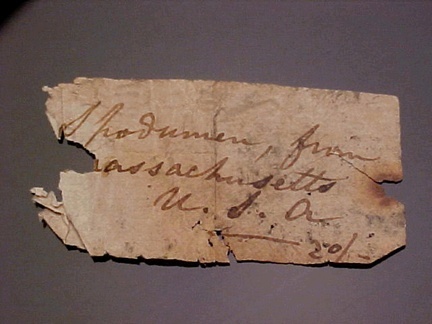 Spodumen, from
assachusetts
U. S. A
20/-